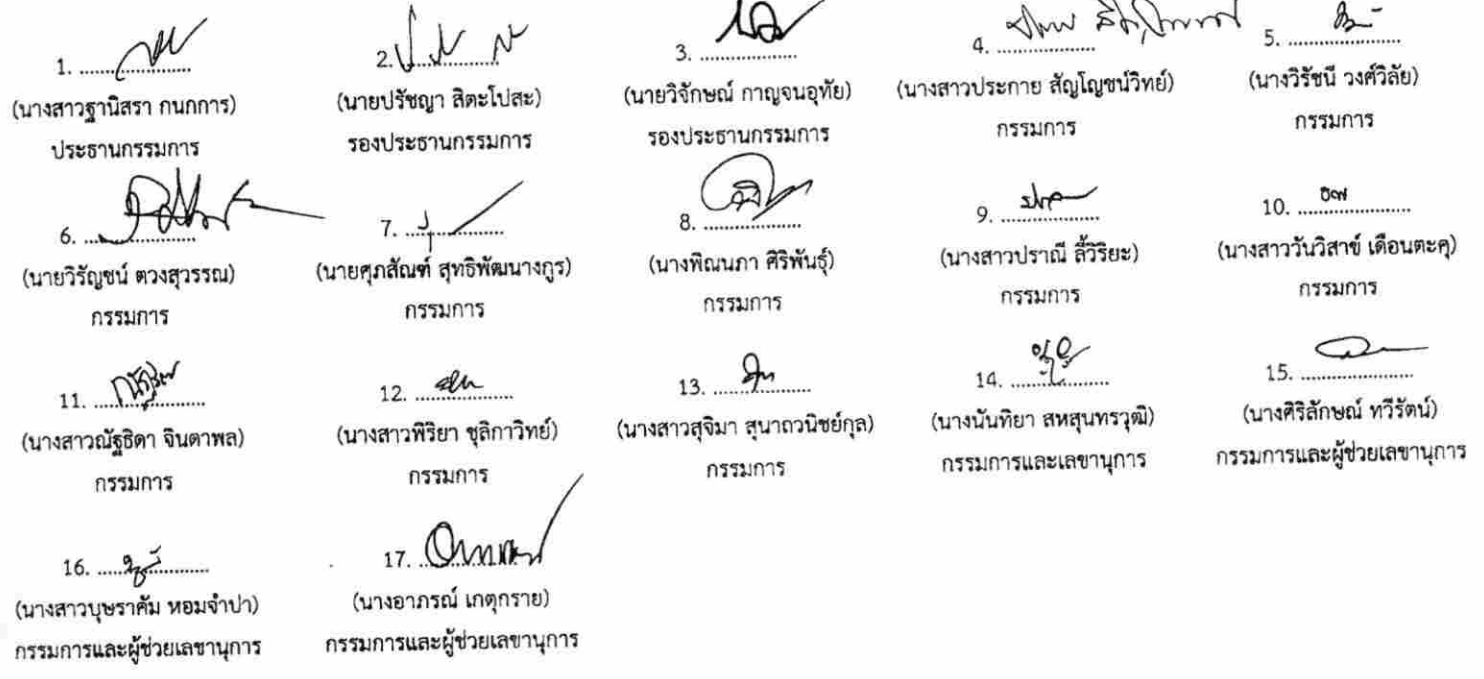 1. ....................
(นางสาวฐานิสรา กนกการ)
ประธานกรรมการ
2. ....................
(นายปรัชญา สิตะโปสะ)
รองประธานกรรมการ
3. ....................
(นายวิจักษณ์ กาญจนอุทัย)
รองประธานกรรมการ
4. ....................
(นางสาวประกาย สัญโญชน์วิทย์)
กรรมการ
5. ....................
(นางวิรัชนี วงศ์วิลัย)
กรรมการ
6. ....................
(นายวิรัญชน์ ตวงสุวรรณ)
กรรมการ
7. ....................
(นายศุภสัณฑ์ สุทธิพัฒนางกูร)
กรรมการ
8. ....................
(นางพิณนภา ศิริพันธุ์)
กรรมการ
9. ....................
(นางสาวปราณี ลิ้วิริยะ)
กรรมการ
10. ....................
(นางสาววันวิสาข์ เดือนตะคุ)
กรรมการ
11. ....................
(นางสาวณัฐธิดา จินตาพล)
กรรมการ
12. ....................
(นางสาวพิริยา ชุลิกาวิทย์)
กรรมการ
13. ....................
(นางสาวสุจิมา สุนาถวนิชย์กุล)
กรรมการ
14. ....................
(นางนันทิยา สหสุนทรวุฒิ)
กรรมการและเลขานุการ
15. ....................
(นางศิริลักษณ์ ทวีรัตน์)
กรรมการและผู้ช่วยเลขานุการ
16. ....................
(นางสาวบุษราคัม หอมจำปา)
กรรมการและผู้ช่วยเลขานุการ
17. ....................
(นางอาภรณ์ เกตุกราย)
กรรมการและผู้ช่วยเลขานุการ